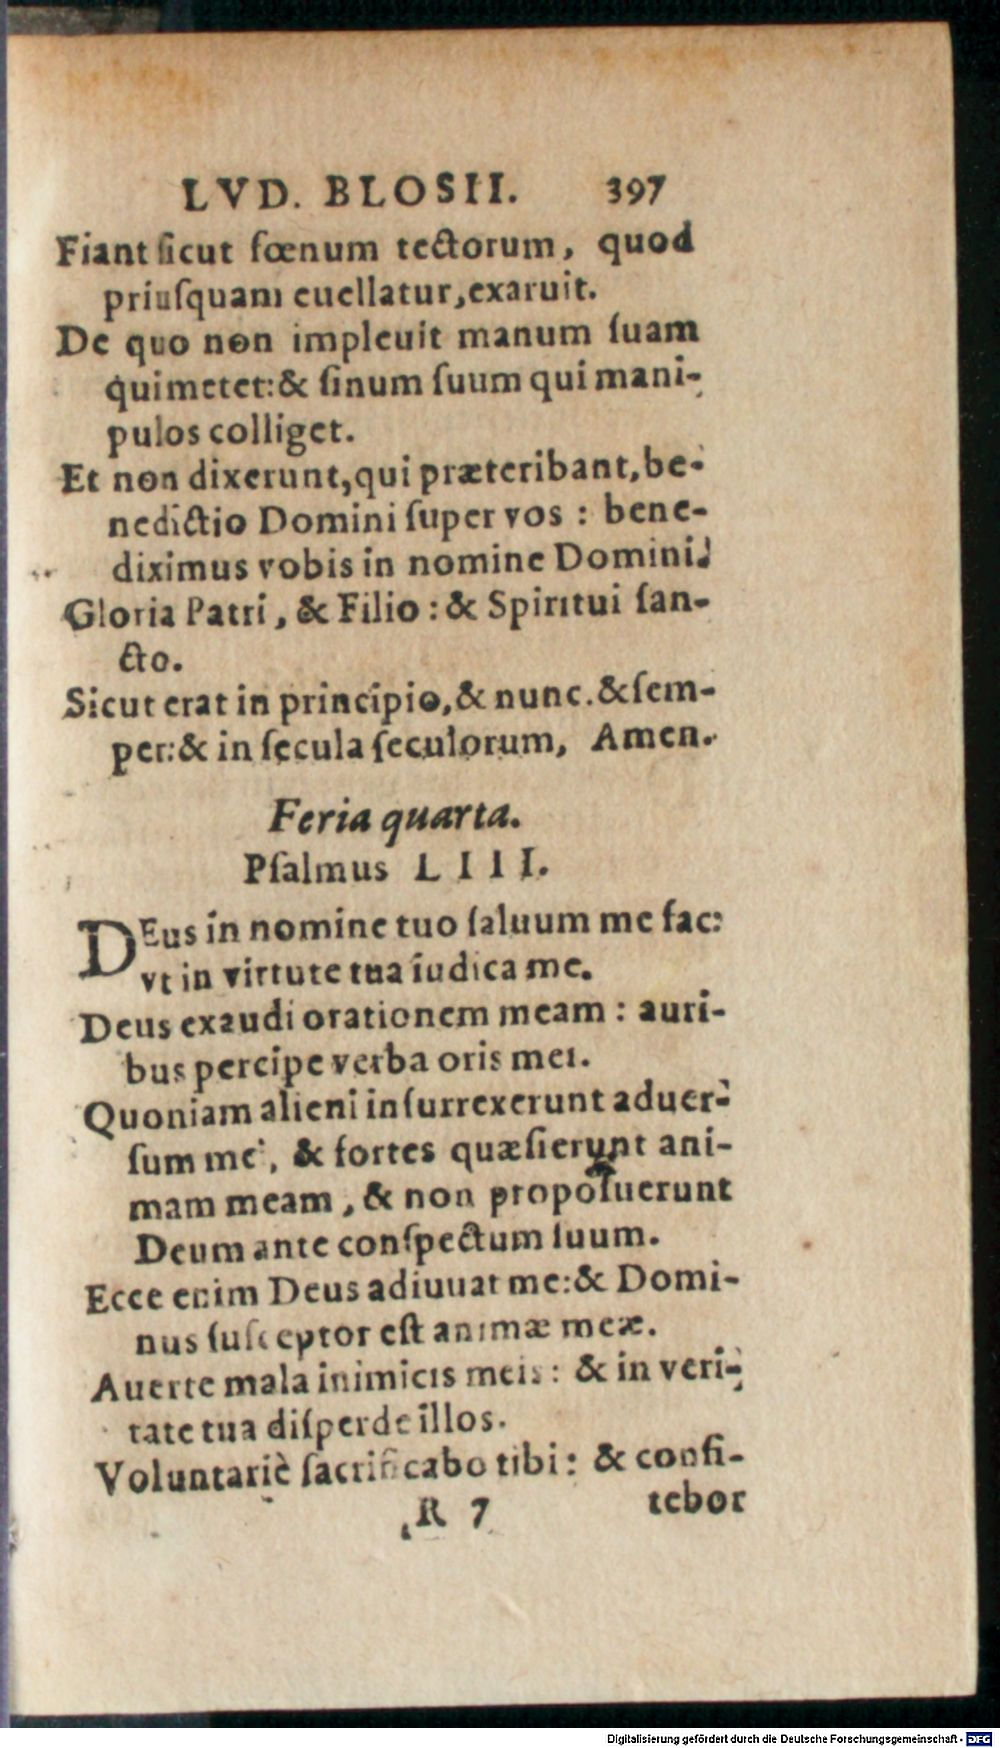 LVD. BLOSII. 397
Fiant ſicut fœnum tectorum, quod
priuſquam euellatur, exaruit.
De quo non impleuit manum ſuam
qui metet: & ſinum ſuum qui mani-
pulos colliget.
Et non dixerunt, qui præteribant, be-
nedictio Domini ſuper vos : bene-
diximus vobis in nomine Domini.
Gloria Patri, & Filio : & Spiritui ſan-
cto.
Sicut erat in principio, & nunc. & ſem-
per: & in ſecula ſeculorum, Amen.
Feria quarta.
Pſalmus LIII.
DEus in nomine tuo ſaluum me fac:
vt in virtute tua iudica me.
Deus exaudi orationem meam : auri-
bus percipe verba oris mei.
Quoniam alieni inſurrexerunt aduer-
ſum me, & fortes quæſierunt ani-
mam meam, & non propoſuerunt
Deum ante conſpectum ſuum.
Ecce enim Deus adiuuat me: & Domi-
nus ſuſceptor eſt animæ meæ.
Auerte mala inimicis meis : & in veri-
tate tua diſperde illos.
Voluntariè ſacrificabo tibi : & confi-
R 7 tebor
Digitalisierung gefördert durch die Deutsche Forschungsgemeinschaft - DFG